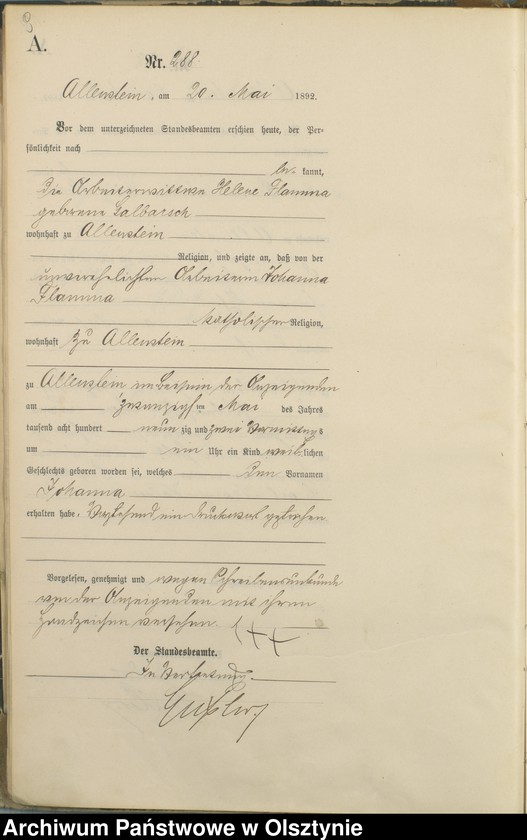 A.
Nr. 288
Allenstein, am 20. Mai 1892.
Vor dem unterzeichneten Standesbeamten erschien heute, der Per-
sönlichkeit nach
be kannt,
die Arbeiterwittwe Helene Flamma
geborene Galbarsch
wohnhaft zu Allenstein
Religion, und zeigte an, daß von der
unverehelichten Arbeiterin Johanna
Flamma
katholischer Religion,
wohnhaft zu Allenstein
zu Allenstein im Beisein der Anzeigenden
am zwanzigsten Mai des Jahres
tausend acht hundert neun zig und zwei Vormittags
um ein Uhr ein Kind weiblichen
Geschlechts geboren worden sei, welches den Vornamen
Johanna
erhalten habe. Vorstehend ein Druckwort gestrichen
Vorgelesen, genehmigt und wegen Schreibensunkunde
von der Anzeigenden mit ihrem
Handzeichen versehen. +++
Der Standesbeamte.
In Vertretung
Archiwum Państwowe w Olsztynie